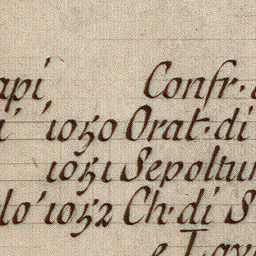 api Confr·
i 1050 Orat·di
1051 Sepoltur
lo 1052 Ch·di S
e Lav